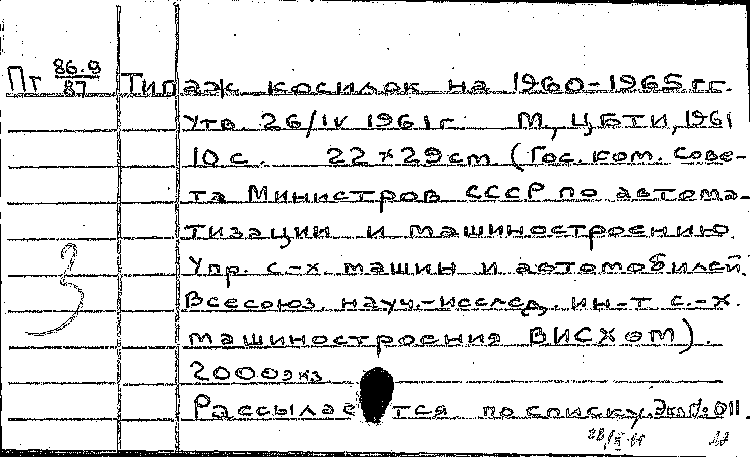 Пт 86.9/87 Типаж косилок на 1960-1965 гг.
Утв. 26/IV 1961 г. М., ЦБТИ, 1961
10 с. 22×29 cm (Гос. ком. Сове-
та Министров СССР по автома-
тизации и машиностроению
Упр. с.-х. машин и автомобилей
Всесоюз. науч.-исслед. ин-т с.-х.
3
машиностроения ВИСХОМ).
2000 экз
Рассылается по списку. Экз. № 011.